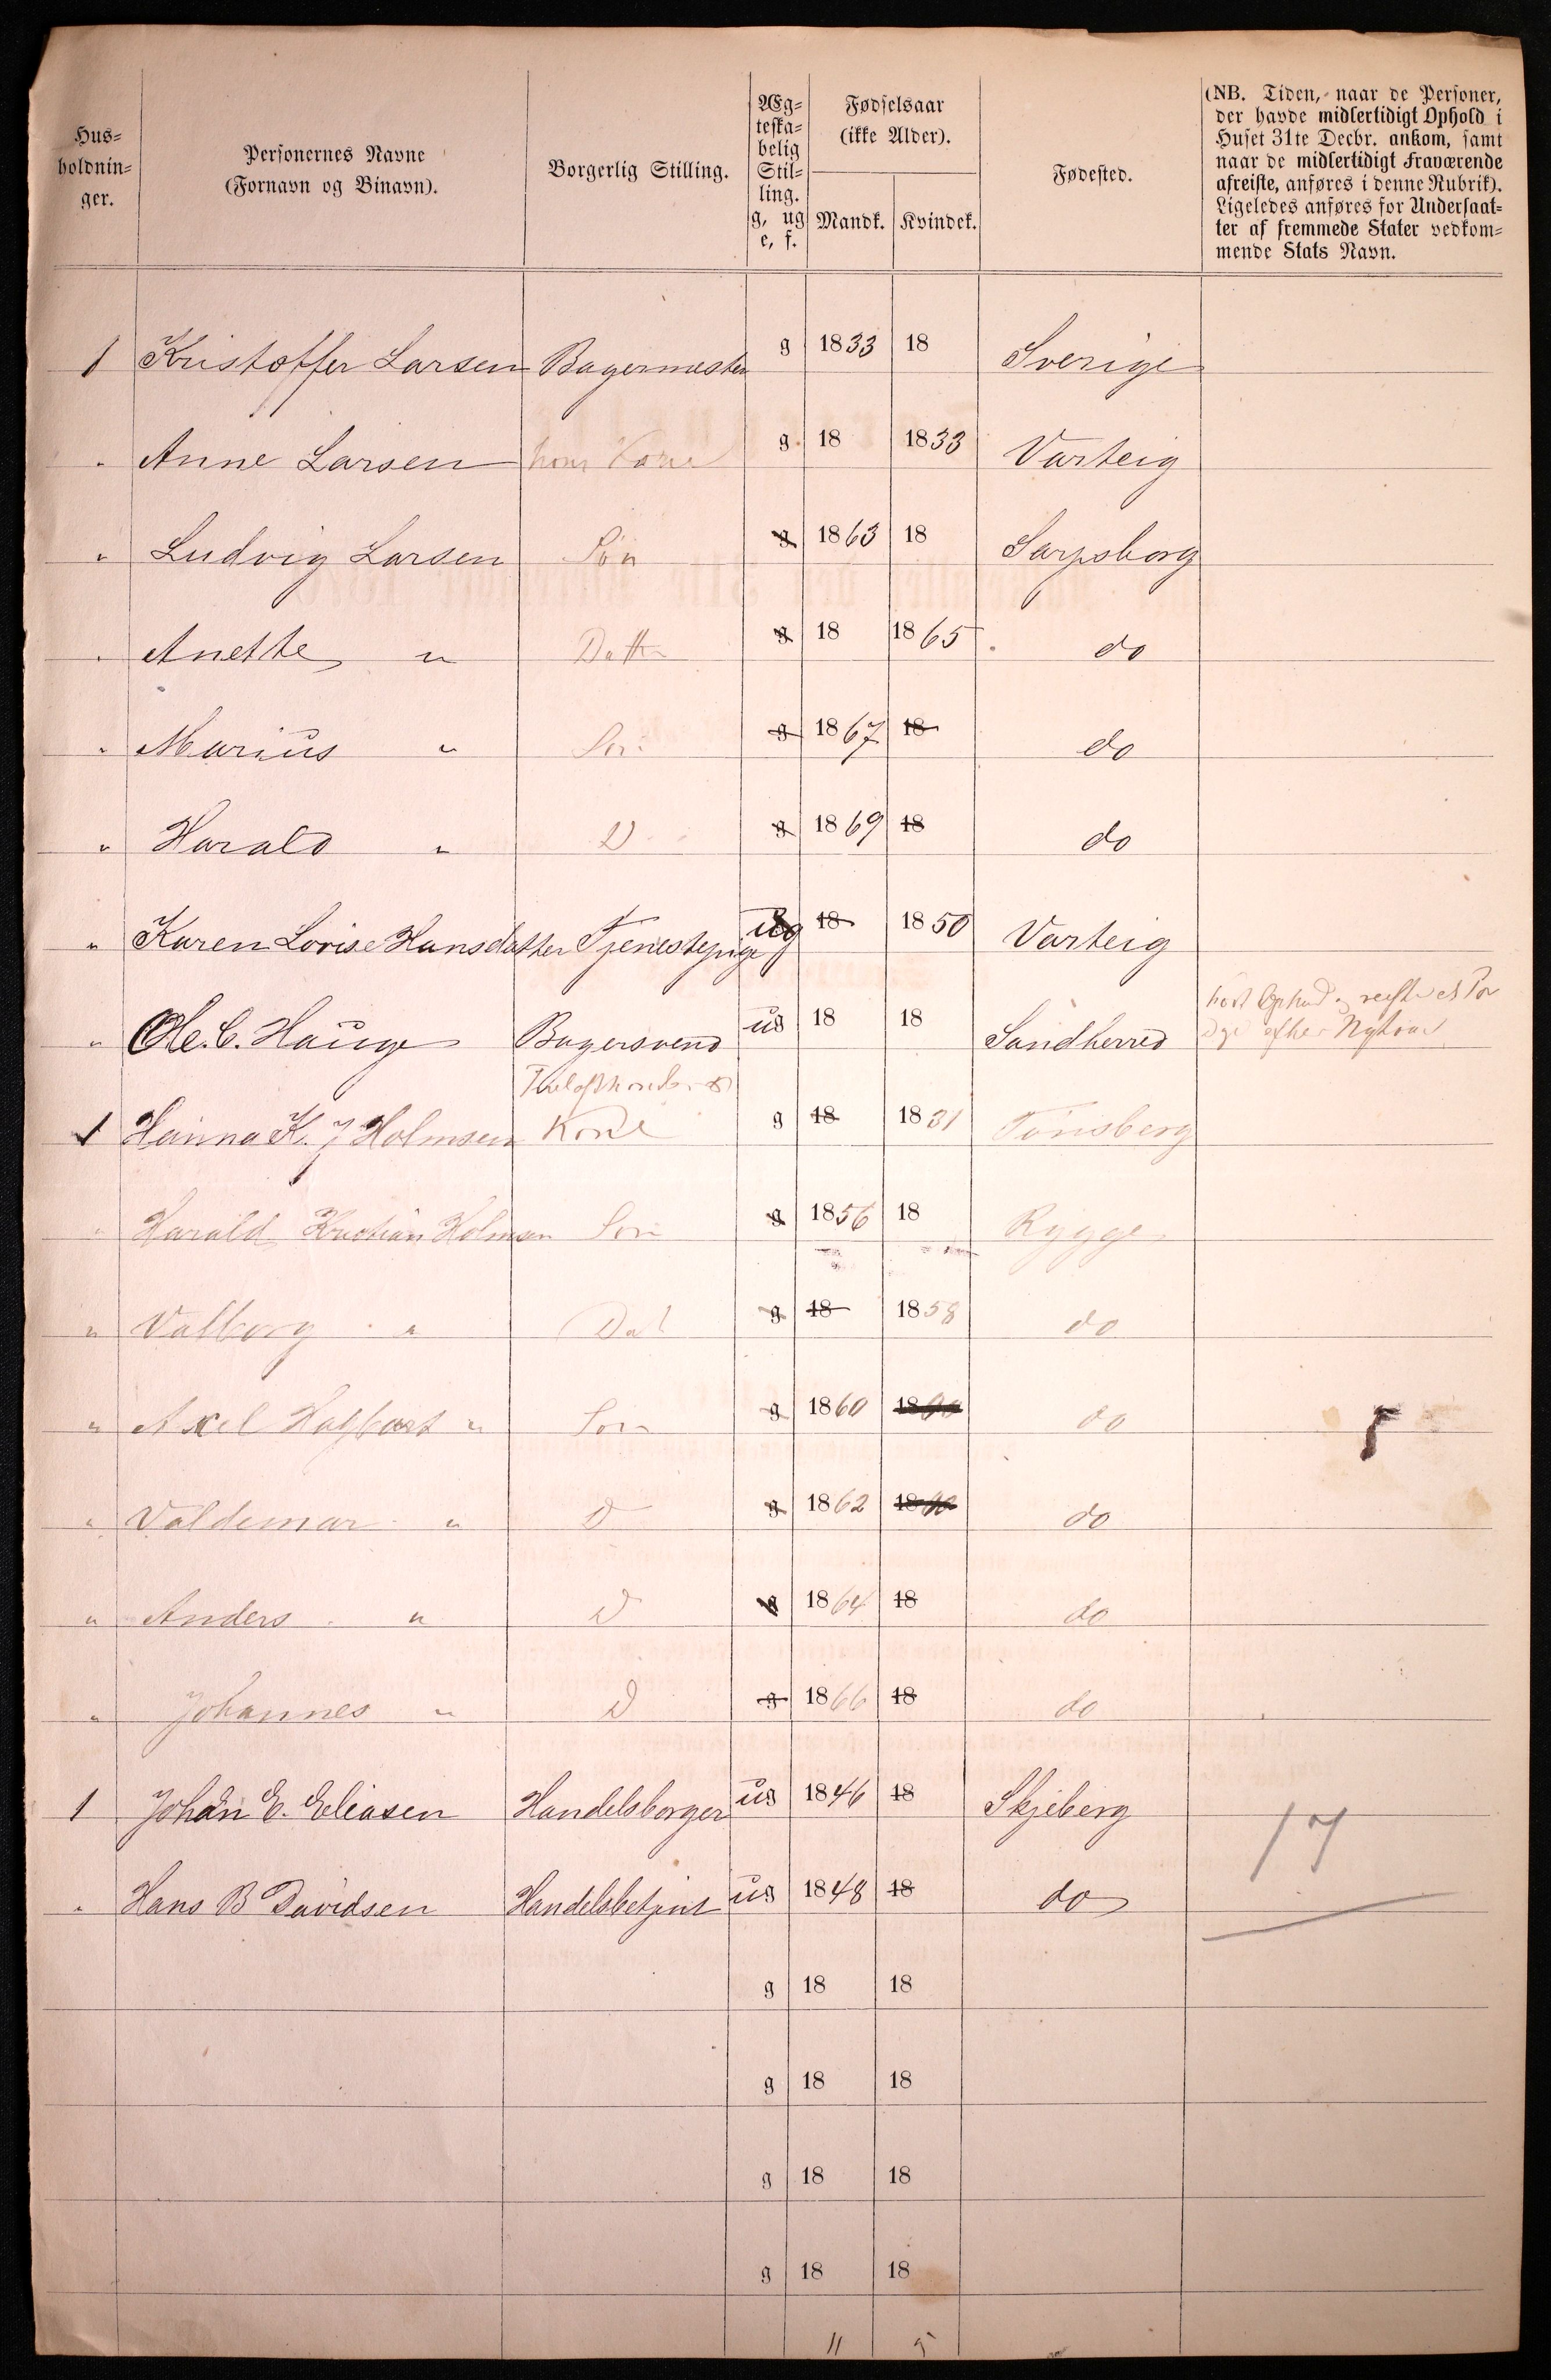 Hus=
holdnin=
ger.
Personernes Navne
(Fornavn og Binavn).
Borgerlig Stilling.
Æg=
teska=
belig
Stil=
ling.
g, ug
e, f.
Fødselsaar
(ikke Alder).
Mandk. Kvindek.
Fødested.
(NB. Tiden, naar de Personer,
der havde midlertidigt Ophold i
Huset 31te Decbr. ankom, samt
naar de midlertidigt Fraværende
afreiste, anføres i denne Rubrik).
Ligeledes anføres for Undersaat=
ter af fremmede Stater vedkom=
mende Stats Navn.
1 Kristoffer Larsen Bagermester g 1833 18 Sverige
" Anne Larsen hans Kone g 18 1833 Varteig
" Ludvig Larsen Søn g 1863 18 Sarpsborg
" Anette " Datter g 18 1865 do
" Marius " Søn g 1867 18 do
" Harald " D g 1869 18 do
" Karen Lovise Hansdatter Tjenestepige ug 18 1850 Varteig
" Ole. C. Hauge Bagersvend ug 18 18 Sandherred
efter Nytaar
1 Hanna K. J Holmsen Kone g 18 1831 Tønsberg
" Harald Kristian Holmsen Søn g 1856 18 Rygge
" Valborg " Dat g 18 1858 do
" Axel Hagbart " Søn g 1860 18 do
" Valdemar " D g 1862 18 do
" Anders " D g 1864 18 do
" Johannes " D g 1866 18 do
1 Johan E. Eliasen Handelsborger ug 1846 18 Skjeberg
17
" Hans B Davidsen Handelsbetjent ug 1848 18 do
g 18 18
g 18 18
g 18 18
g 18 18
11 5